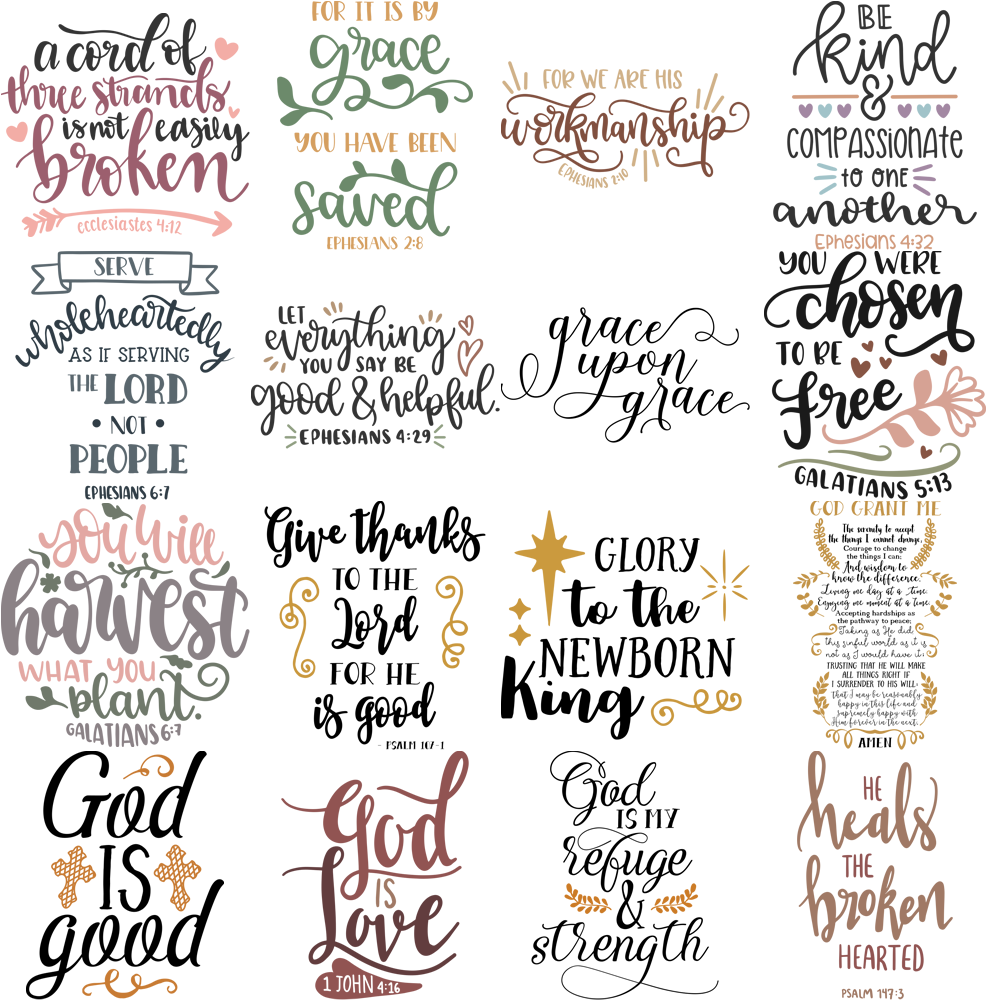 a cord of
three strands
is not easily
broken
ecclesiastes 4:12
FOR IT IS BY
grace
YOU HAVE BEEN
saved
EPHESIANS 2:8
FOR WE ARE HIS
workmanship
EPHESIANS 2:10
BE
kind
&
COMPASSIONATE
to ONE
another
Ephesians 4:32
SERVE
wholeheartedly
AS IF SERVING
THE LORD
• NOT •
PEOPLE
EPHESIANS 6:7
LET
everything
YOU SAY BE
good & helpful.
EPHESIANS 4:29
grace
upon
grace
YOU WERE
chosen
TO BE
Free
GALATIANS 5:13
you will
harvest
WHAT YOU
plant.
GALATIANS 6:7
Give thanks
TO THE
Lord
FOR HE
is good
- PSALM 107-1
GLORY
to the
NEWBORN
King
GOD GRANT ME
The serenity to accept
the things I cannot change,
Courage to change
the things I can;
And wisdom to
know the difference.
Living one day at a Time;
Enjoying one moment at a time;
Accepting hardships as
the pathway to peace;
Taking as He did
this sinful world as it is
not as I would have it;
TRUSTING THAT HE WILL MAKE
ALL THINGS RIGHT IF
I SURRENDER TO HIS WILL;
that I may be reasonably
happy in this life and
supremely happy with
Him forever in the next.
AMEN
God
IS
good
God
IS
Love
1 JOHN 4:16
God
IS MY
refuge
&
strength
HE
heals
THE
broken
HEARTED
PSALM 147:3